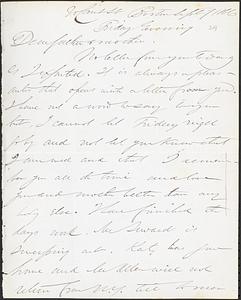 Boston Sept 9
Friday Evening
Dear father & mother.
No letter from you to day
as I expected. It is always pleas
anter that opens with a letter from you.
I have not a word to say
but I cannot let Friday night
go by and not let you know that
I and that I remem
ber you all the time and love
you and much better than any
body else. Have finished the
days work. Mr. Seward is
out. Kate has gone
home and Mr Allen will not
return from N.Y. till to mor